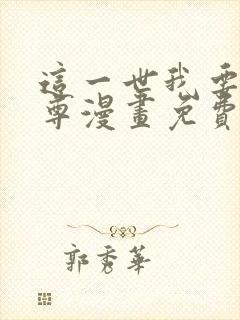 這一世我要
尊漫畫免費
郭秀華